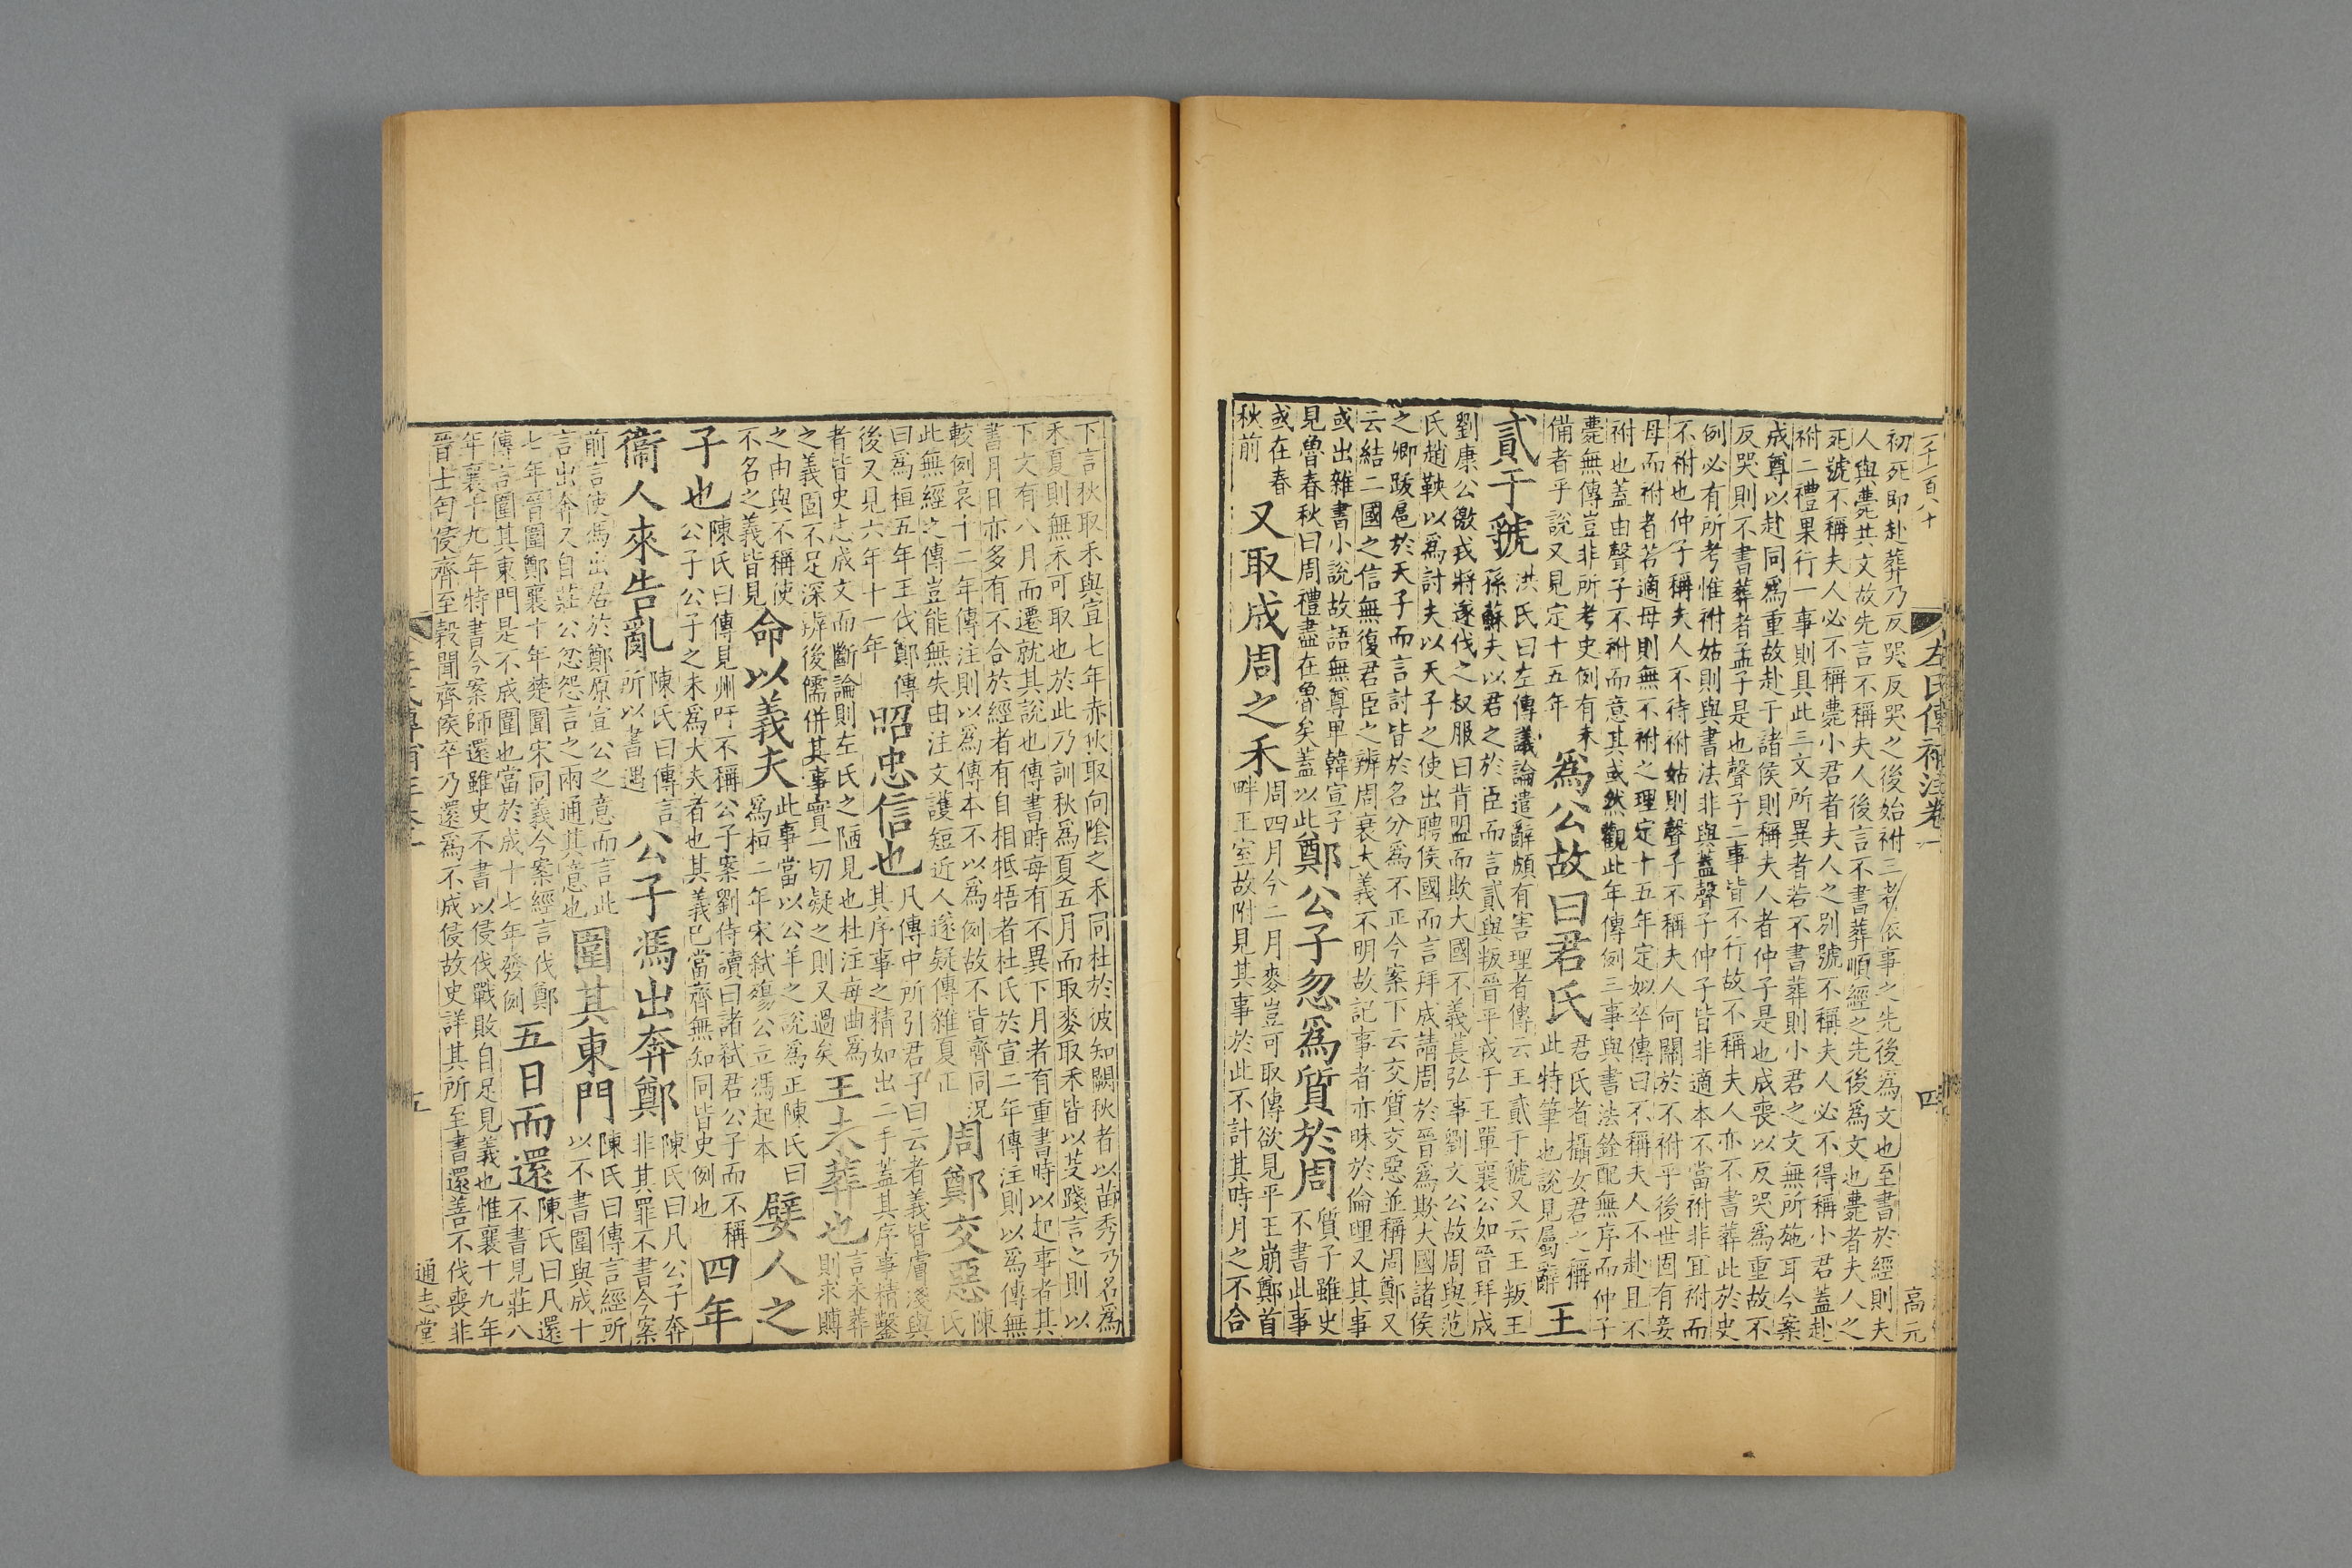 左氏傳補注卷一
四
高元
初死即赴葬乃反哭反哭之後始祔三者依事之先後爲文也至書於經則夫
人與薨其文故先言不稱夫人後言不書葬順經之先後爲文也薨者夫人之
死號不稱夫人必不稱薨小君者夫人之别號不稱夫人必不得稱小君蓋赴
祔二禮果行一事則具此三文所異者若不書葬則小君之文無所施耳今案
成尊以赴同爲重故赴于諸侯則稱夫人者仲子是也成喪以反哭爲重故不
反哭則不書葬者孟子是也聲子二事皆不行故不稱夫人亦不書葬此於史
例必有所考惟祔姑則與書法非與蓋聲子仲子皆非適本不當祔非冝祔而
不祔也仲子稱夫人不待祔姑則聲子不稱夫人何關於不祔乎後世固有妾
母而祔者若適母則無不祔之理定十五年定姒卒傳曰不稱夫人不赴且不
祔也蓋由聲子不祔而意其或然觀此年傳例三事與書法銓配無序而仲子
薨無傳豈非所考史例有未
備者乎說又見定十五年
爲公故曰君氏
君氏者攝女君之稱
此特筆也說見屬辭
王
貳于虢
洪氏曰左傳議論遣辭頗有害理者傳云王貳于虢又云王叛王
孫蘇夫以君之於臣而言貳與叛晉平戎于王單襄公如晉拜成
劉康公徼戎將遂伐之叔服曰背盟而欺大國不義萇弘事劉文公故周與范
氏趙鞅以爲討夫以天子之使出聘侯國而言拜成請周於晉爲欺大國諸侯
之卿跋扈於天子而言討皆於名分爲不正今案下云交質交惡並稱周鄭又
云結二國之信無復君臣之辨周衰大義不明故記事者亦昧於倫理又其事
或出雜書小說故語無尊卑韓宣子
見魯春秋曰周禮盡在魯矣蓋以此
鄭公子忽爲質於周
質子雖史
不書此事
或在春
秋前
又取成周之禾
周四月今二月麥豈可取傳欲見平王崩鄭首
畔王室故附見其事於此不計其時月之不合
下言秋取禾與宣七年赤狄取向陰之禾同杜於彼知闕秋者以苗秀乃名爲
禾夏則無禾可取也於此乃訓秋爲夏五月而取麥取禾皆以芟踐言之則以
下文有八月而遷就其說也傳書時每有不異下月者有重書時以起事者其
書月日亦多有不合於經者有自相牴牾者杜氏於宣二年傳注則以爲傳無
較例哀十二年傳注則以爲傳本不以爲例故不皆齊同況
此無經之傳豈能無失由注文護短近人遂疑傳雜夏正
周鄭交惡
陳
氏
曰爲桓五年王伐鄭傳
後又見六年十一年
昭忠信也
凡傳中所引君子曰云者義皆膚淺與
其序事之精如出二手蓋其序事精鑿
者皆史志成文而斷論則左氏之陋見也杜注每曲爲
之義固不足深辨後儒併其事實一切疑之則又過矣
王未葬也
言未葬
則求賻
之由與不稱使
不名之義皆見
命以義夫
此事當以公羊之說爲正陳氏曰
爲桓二年宋弒殤公立馮起本
嬖人之
子也
陳氏曰傳見州吁不稱公子案劉侍讀曰諸弒君公子而不稱
公子公子之未爲大夫者也其義已當齊無知同皆史例也
四年
衞人來告亂
陳氏曰傳言
所以書遇
公子馮出奔鄭
陳氏曰凡公子奔
非其罪不書今案
前言使馮出居於鄭原宣公之意而言此
言出奔又自莊公忽怨言之兩通其意也
圍其東門
陳氏曰傳言經所
以不書圍與成十
七年晉圍鄭襄十年楚圍宋同義今案經言伐鄭
傳言圍其東門是不成圍也當於成十七年發例
五日而還
陳氏曰凡還
不書見莊八
年襄十九年特書今案師還雖史不書以侵伐戰敗自足見義也惟襄十九年
晉士匄侵齊至穀聞齊侯卒乃還爲不成侵故史詳其所至書還善不伐喪非
五
通志堂